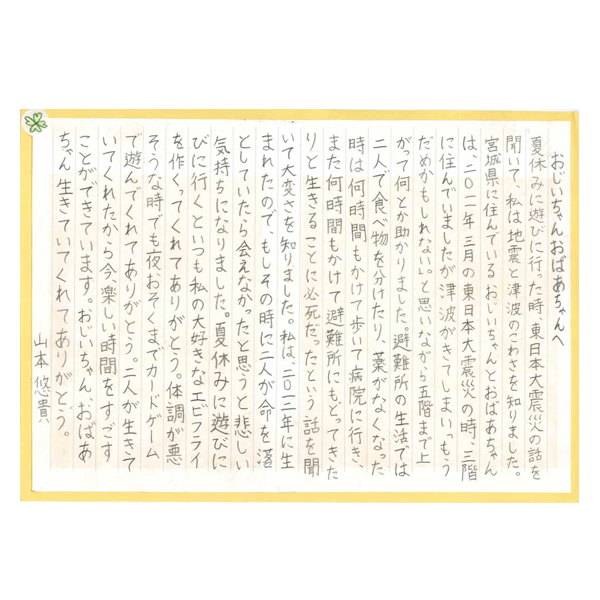 おじいちゃんおばあちゃんへ
夏休みに遊びに行った時、東日本大震災の話を
聞いて、私は地震と津波のこわさを知りました。
宮城県に住んでいるおじいちゃんとおばあちゃん
は、二〇一一年三月の東日本大震災の時、三階
に住んでいましたが津波がきてしまい、もう
だめかもしれない。と思いながら五階まで上
がって何とか助かりました。避難所の生活では
二人で食べ物を分けたり、薬がなくなった
時は何時間もかけて歩いて病院に行き、
また何時間もかけて避難所にもどってきた
りと生きることに必死だったという話を聞
いて大変さを知りました。私は、二〇一三年に生
まれたので、もしその時に二人が命を落
としていたら会えなかったと思うと悲しい
気持ちになりました。夏休みに遊びに
びに行くといつも私の大好きなエビフライ
を作ってくれてありがとう。体調が悪
そうな時でも夜、おそくまでカードゲーム
で遊んでくれてありがとう。二人が生きて
いてくれたから今、楽しい時間をすごす
ことができています。おじいちゃん、おばあ
ちゃん生きていてくれてありがとう。
山本悠貴